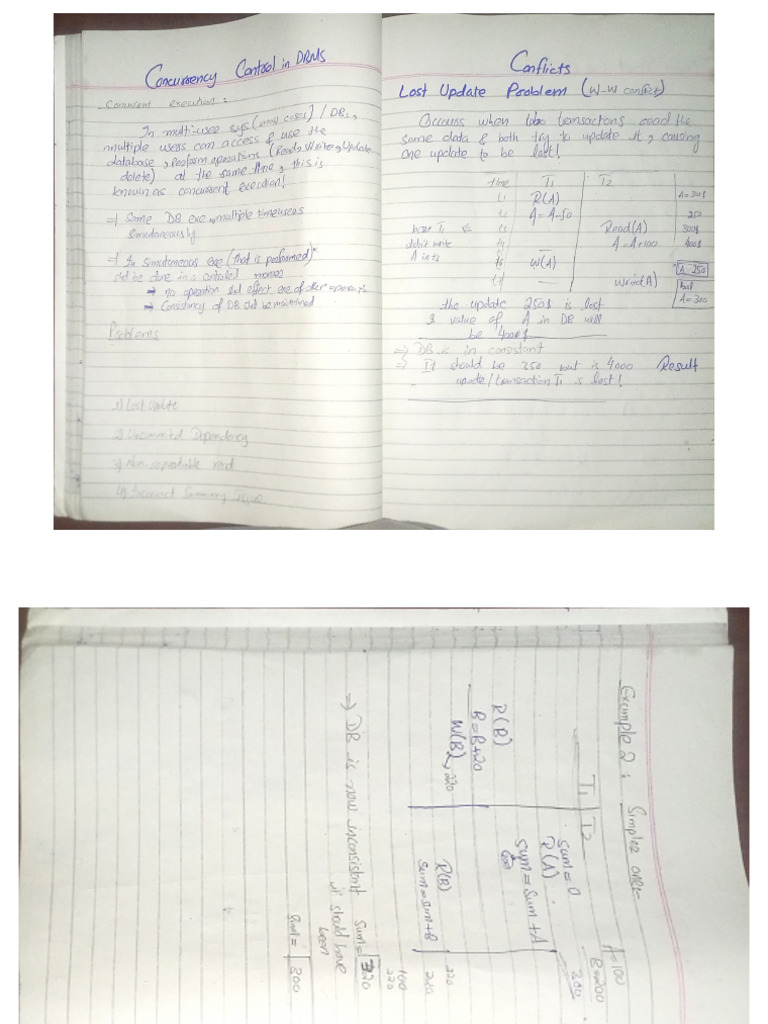 Concurrency Control in DBMS
Concurrent execution:
In multi-user sys( cases) / DBs,
multiple users can access & use the
database, perform operations (Read, Write, Update
delete) at the same time, this is
known as concurrent execution!
⇒ Same DB exe multiple
Simutaneously
⇒ In simutaneous exe (that is performed)
shd be done in a manner
→ no operation shd effect exe of other
→ Consistancy of DB shd be maintained
Problems
1) Lost Update
2) Uncommited Dependency
3) Non-repeatable read
4) Incorrect Summary Issue
Conflicts
Lost Update Problem (W-W conflict)
Occurs when two transactions read the
same data & both try to update it, causing
one update to be lost!
time T1 T2
t1 R(A) A=300$
t2 A=A-50 250
here T1 t3 Read(A) 300$
didnt write t4 A=A+100 400$
A in t3 t5 W(A) A=250
Write(A) but
A=300
the update 250$ is lost
& value of A in DB will
be 400$
⇒ DB is in consistant
⇒ It should be 250 but is 4000 Result
update/transaction T1 is lost!
Example 2: Simple
A=100
B=200
300
T1 T2
sum=0
R(A)
sum=sum+A
R(B)
B=B+20
W(B) 220
R(B) 220
sum=sum+B 220
100
220
⇒ DB is now inconsistant sum=320
it should have
been
sum=300